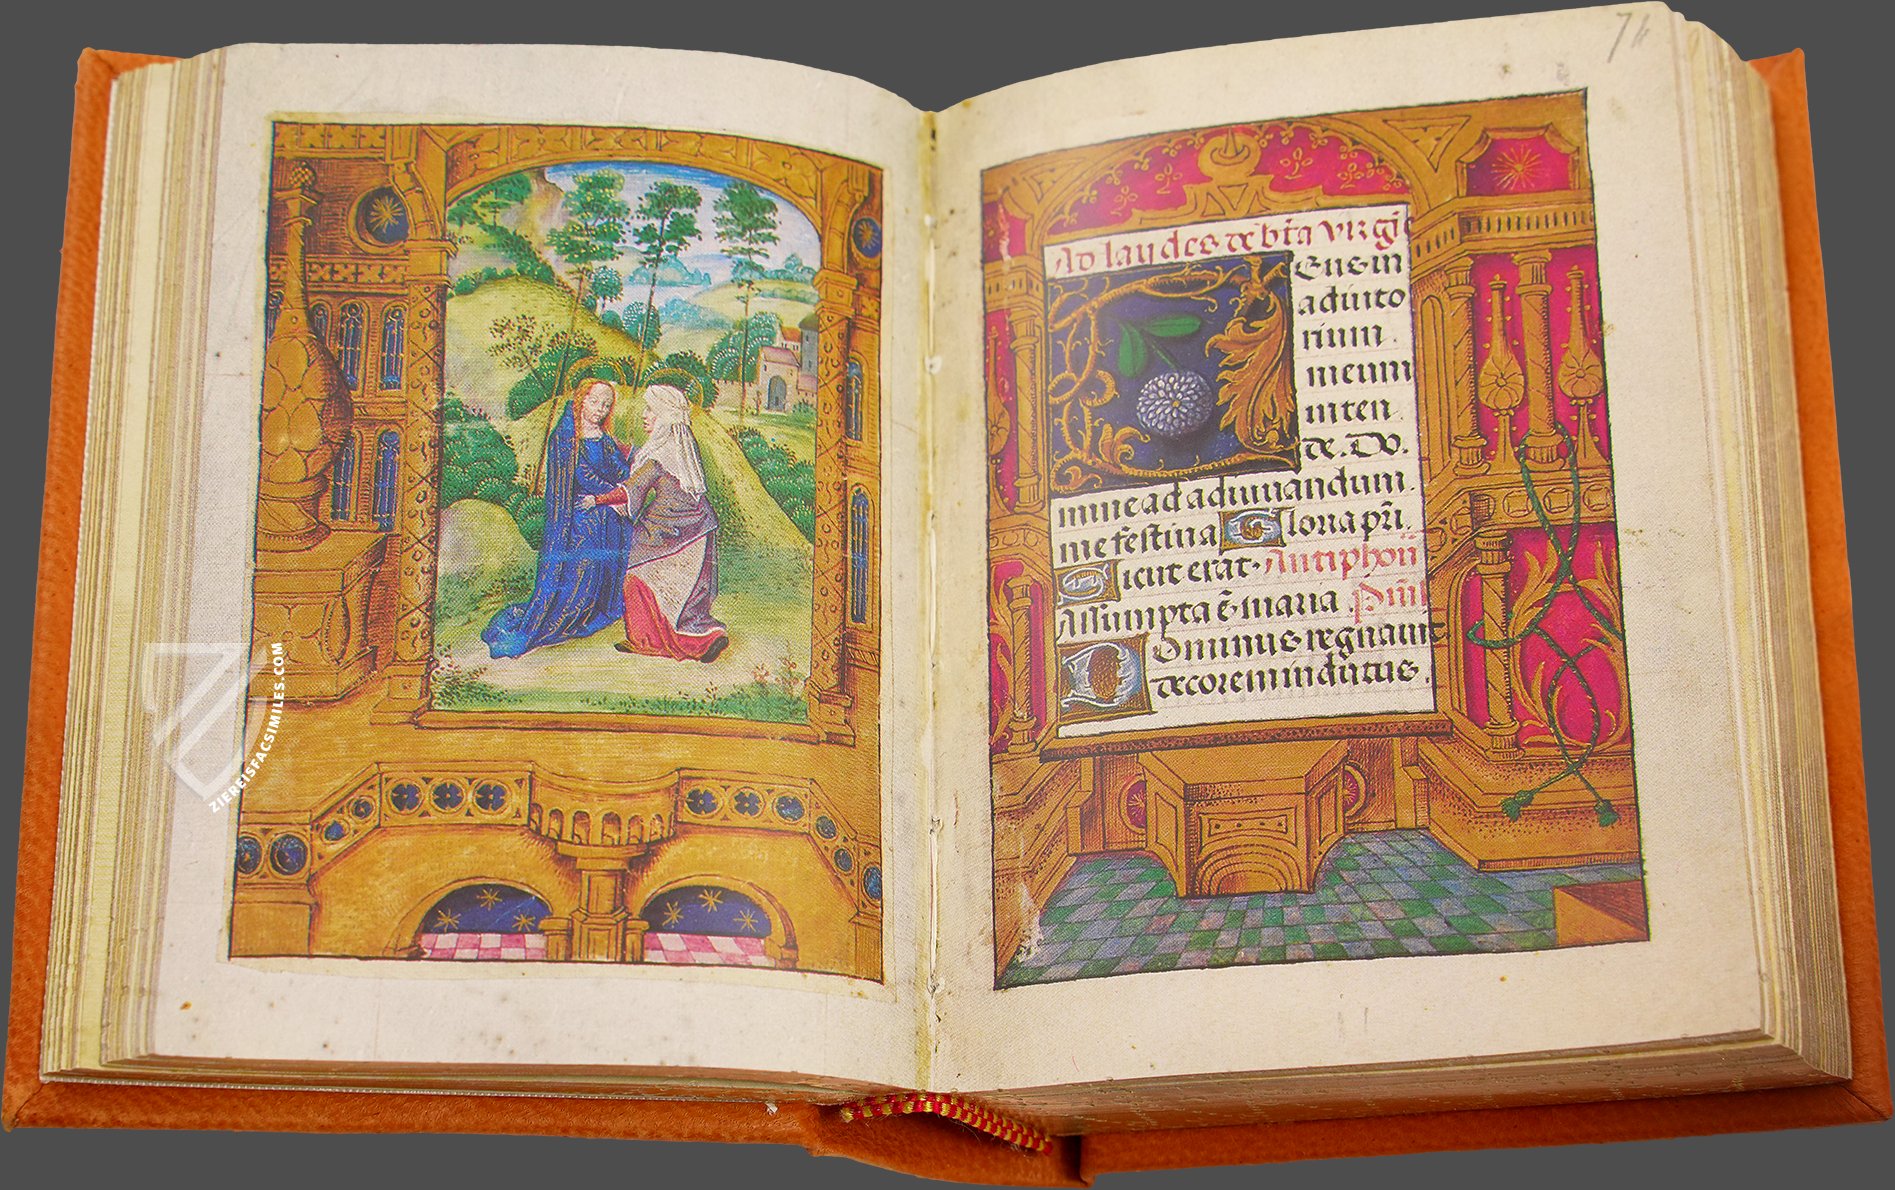 74
Ad laudes de bt̄a virgīe
Eus in
adiuto
rium
meum
inten
de. Do
mine ad adiuuandum.
me festina Gloria pr̄i.
Sicut erat. Antiphon̄
Assumpta ē maria. Psal̄
Dominus regnauit
decorem indutus.
ZIEREISFACSIMILES.COM